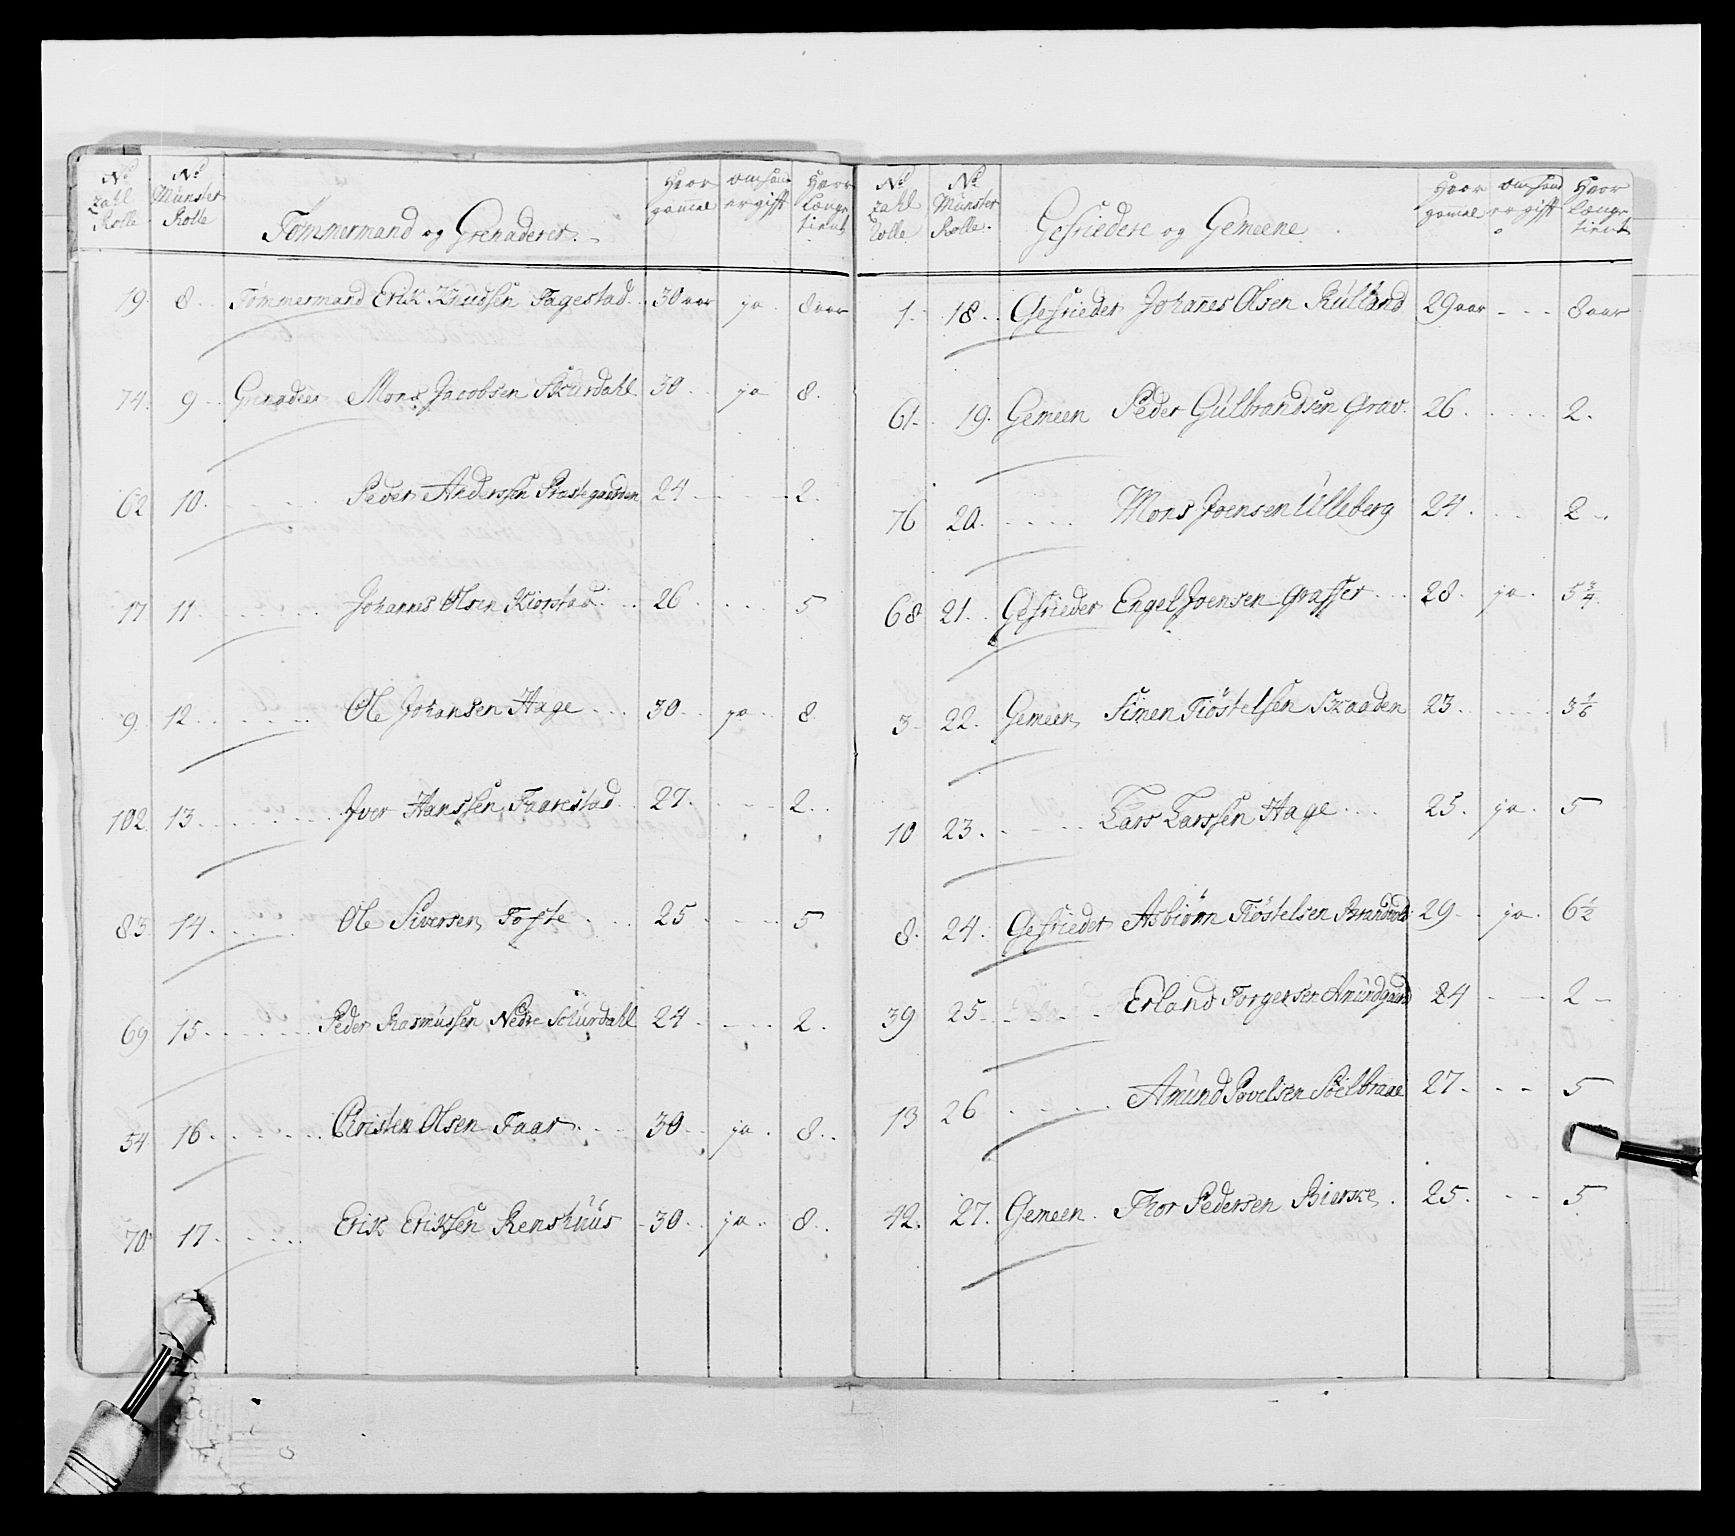 No Zahl Rolle | No Münster Rolle | Tömmermand og Grenaderer | Hvor gammel | Om hand er gift | Hvor længe tient
19 | 8 | Tömmermand Erik Knudsen Fagestad | 30 aar | ja | 8 aar
74 | 9 | Grenadeer Mons Jacobsen Skurdahl | 30 | ja | 8
62 | 10 | Peder Anderssen Præstegaarden | 24 | - | 2
17 | 11 | Johannes Olsen Kiorstad | 26 | - | 5
9 | 12 | Ole Johansen Hage | 30 | ja | 8
102 | 13 | Iver Hanssen Faarestad | 27 | - | 2
83 | 14 | Ole Siversen Fofte | 25 | - | 5
69 | 15 | Peder Rasmüssen Nedre Schurdahl | 24 | - | 2
54 | 16 | Christen Olsen Faar | 30 | ja | 8
70 | 17 | Erik Eriksen Renshüus | 30 | ja | 8
No Zahl Rolle | No Münster Rolle | Gefriedere og Gemeene | Hvor gammel | Om hand er gift | Hvor længe tient
1 | 18 | Gefrieder Johanes Olsen Rülland | 29 aar | - | 8 aar
61 | 19 | Gemeen Peder Gülbrandsen Grav | 26 | - | 2
76 | 20 | Mons Joensen Ülleberg | 24 | - | 2
68 | 21 | Gefrieder Engel Joensen | 28 | ja | 5 3/4
3 | 22 | Gemeen Simen Tiöstelsen Braaden | 23 | - | 3 1/6
10 | 23 | Lars Larssen Hage | 25 | ja | 5
8 | 24 | Gefrieder Asbiörn Tiöstelsen Brandvold | 29 | ja | 6 1/2
39 | 25 | Erland Torgersen Amundgaard | 24 | - | 2
13 | 26 | Amund Povelsen | 27 | - | 5
42 | 27 | Gemeen Thor Pedersen Bierke | 25 | - | 5